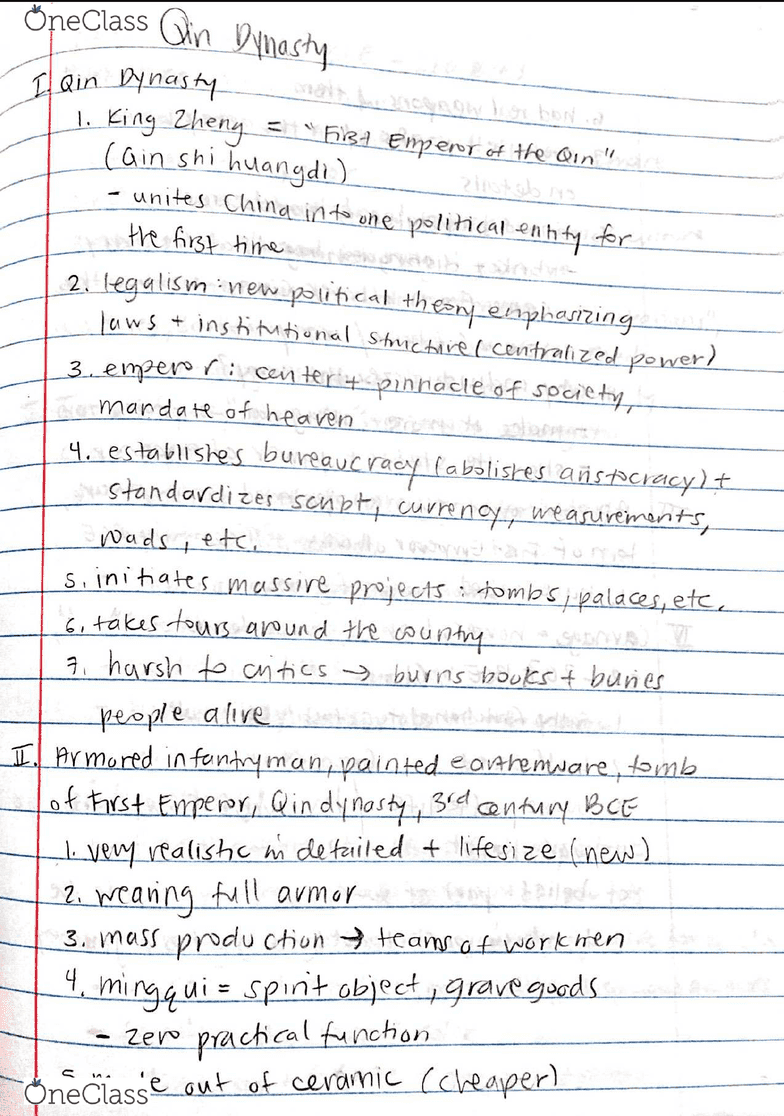 OneClass
Qin Dynasty
I. Qin Dynasty
1. King Zheng = "First Emperor of the Qin"
(Qin shi huangdi)
- unites China into one political entity for
the first time
2. legalism: new political theory emphasizing
laws + institutional structure (centralized power)
3. emperor: center + pinnacle of society,
mandate of heaven
4. establishes bureaucracy (abolishes aristocracy) +
standardizes script, currency, measurements,
roads, etc.
5. initiates massive projects: tombs, palaces, etc.
6. takes tours around the country
7. harsh to critics → burns books + buries
people alive
II. Armored infantryman, painted earthenware, tomb
of First Emperor, Qin dynasty, 3rd century BCE
1. very realistic in detailed + lifesize (new)
2. wearing full armor
3. mass production → teams of workmen
4. mingqui = spirit object, grave goods
- zero practical function
out of ceramic (cheaper)
OneClass